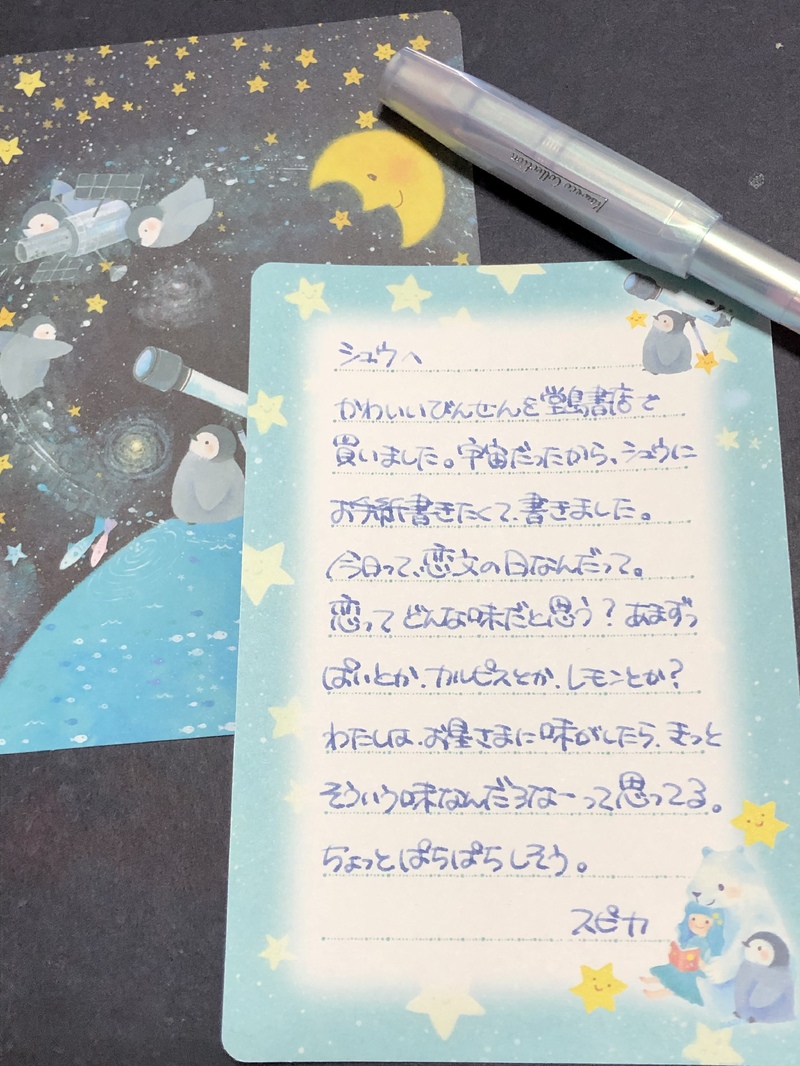 Kaweco Collection
シュウへ
かわいいびんせんを堂島書店で
買いました。宇宙だったから、シュウに
お手紙書きたくて、書きました。
今日って、恋文の日なんだって。
恋ってどんな味だと思う？あまずっ
ぱいとか、カルピスとか、レモンとか？
わたしは、お星さまに味がしたら、きっと
そういう味なんだろなーって思ってる。
ちょっとぱちぱちしそう。
スピカ